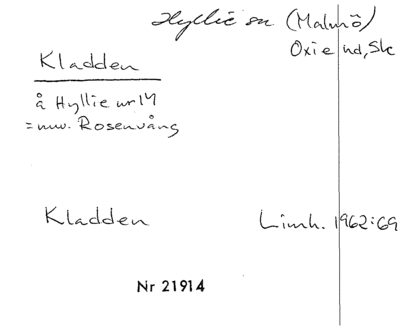 Hyllie sn (Malmö)
Oxie hd, Sk
Kladden
å Hyllie nr 14
= nuv. Rosenvång
Kladden Limh. 1962:69
Nr 21914